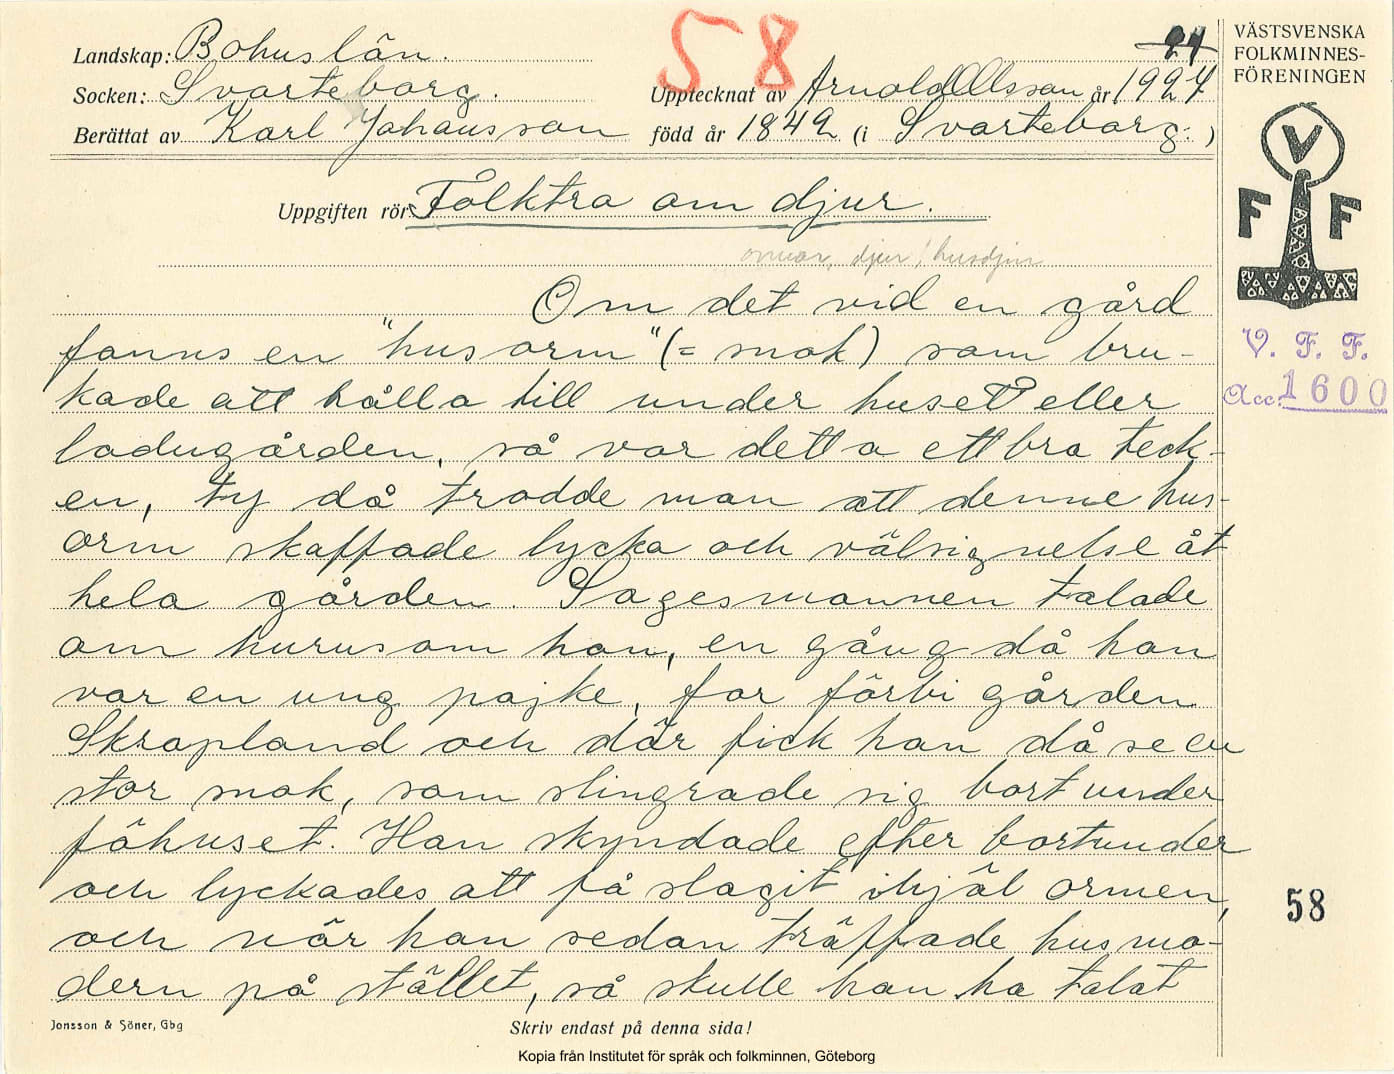 58
24
VÄSTSVENSKA
FOLKMINNES-
FÖRENINGEN
Landskap: Bohuslän.
Socken: Svarteborg. Upptecknat av Arnold Olsson år 1924
Berättat av Karl Johansson född år 1842 (i Svarteborg. )
V
F F
Uppgiften rör Folktro om djur.
ormar, djur, husdjur
Om det vid en gård
fanns en "husorm" (= snok) som bru-
kade att hålla till under huset eller
ladugården, så var detta ett bra teck-
en, ty då trodde man att denne hus-
orm skaffade lycka och välsignelse åt
hela gården. Sagesmannen talade
om hurusom han, en gång då han
var en ung pojke, for förbi gården
Skrapland och där fick han då se en
stor snok, som slingrade sig bort under
fähuset. Han skyndade efter bortunder
och lyckades att få slagit ihjäl ormen,
och när han sedan träffade husmo-
dern på stället, så skulle han ha talat
V. F. F.
Acc. 1600
58
Jonsson & Söner, Gbg
Skriv endast på denna sida!
Kopia från Institutet för språk och folkminnen, Göteborg